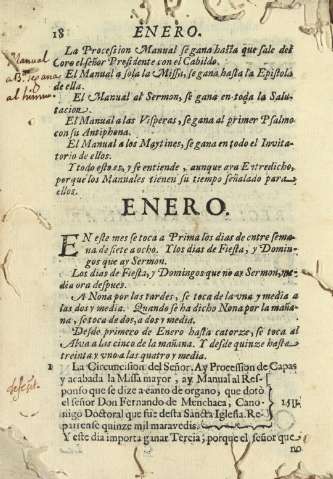 18 ENERO.
La Procession Manual se gana hasta que sale del
Coro el señor Presidente con el Cabildo.
Manual
El Manual a sola la Missa, se gana hasta la Epistola
de ella.
El Manual al Sermon, se gana en toda la Salu-
tacion.
El Manual a las Visperas, se gana al primer Psalmo
con su Antiphona.
El Manual a los Maytines, se gana en todo el Invita-
torio de ellos.
Y todo esto es, y se entiende, aunque aya Entredicho,
porque los Manuales tienen su tiempo señalado para
ellos.
ENERO.
EN este mes se toca a Prima los dias de entre sema-
na de siete a ocho. Y los dias de Fiesta, y Domin-
gos que ay Sermon.
Los dias de Fiesta, y Domingos que no ay Sermon, me-
dia ora despues.
A Nona por las tardes, se toca de la vna y media a
las dos y media. Quando se ha dicho Nona por la maña-
na, se toca de dos, a dos y media.
Desde primero de Enero hasta catorze, se toca al
Alva a las cinco de la mañana. Y desde quinze hasta
treinta y vno a las quatro y media.
1 La Circuncision del Señor. Ay Procession de Capas
y acabada la Missa mayor, ay Manual al Res-
ponso que se dize a canto de organo, que dotò
el señor Don Fernando de Menchaca, Cano-
nigo Doctoral que fue desta Sancta Iglesia. Re-
parrense quinze mil maravedis.
Y este dia importa ganar Tercia; porque el señor que
no